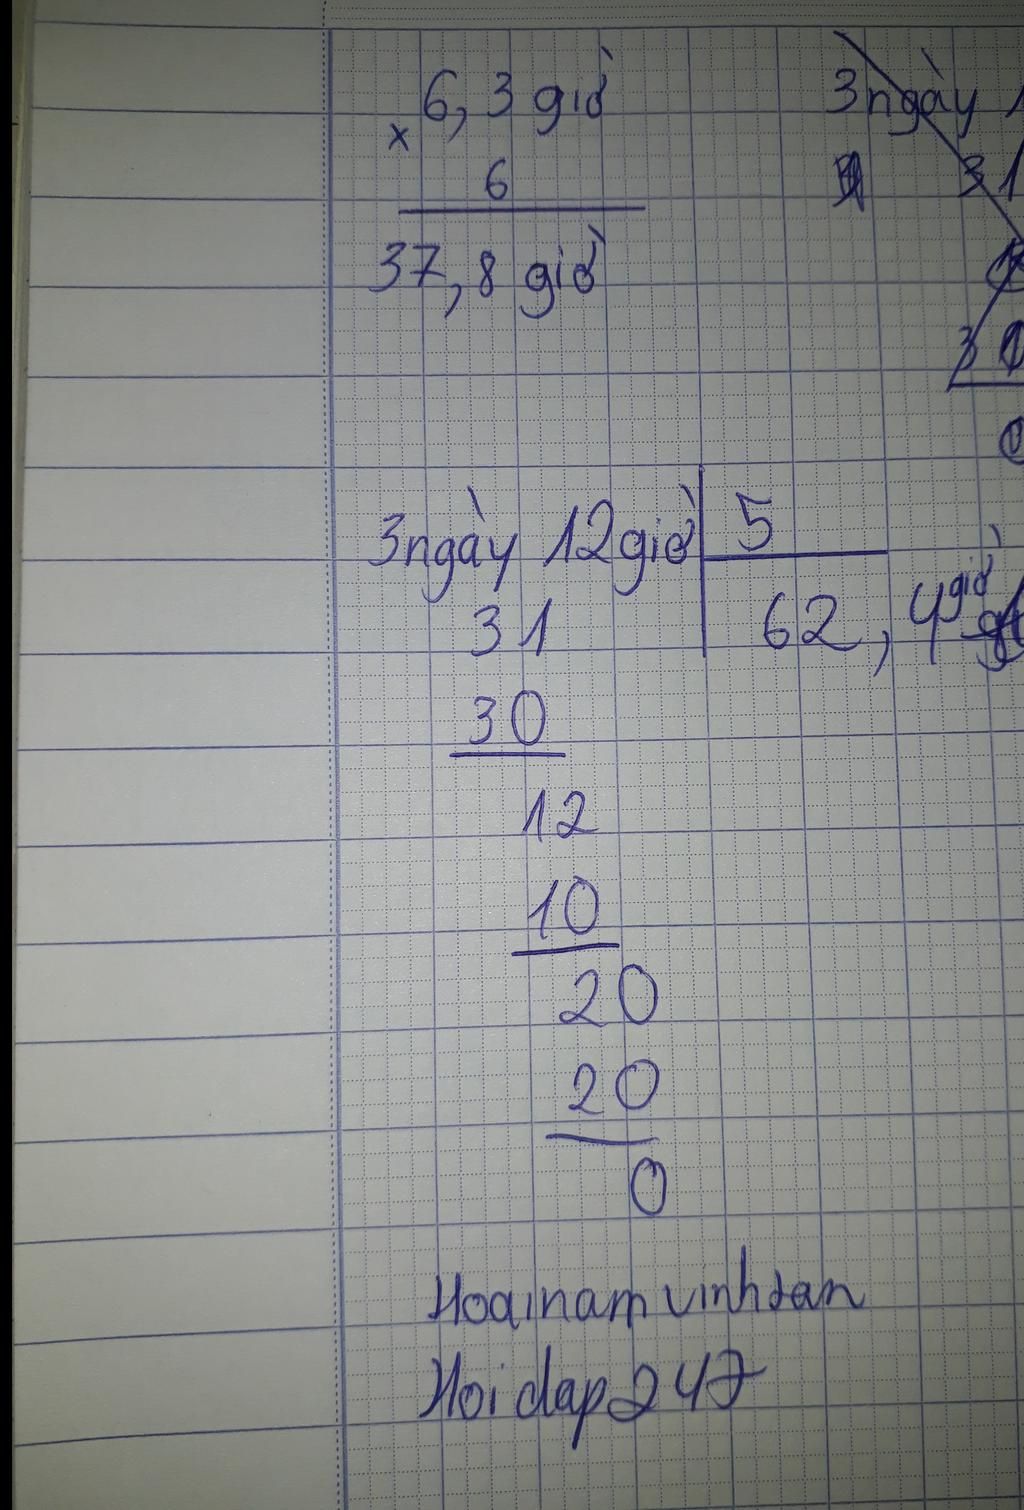 6,3 giờ
x
6
37,8 giờ
3ngày 1
3 1
3 0
0
3ngày 12giờ 5
31 62,4 giờ
30
12
10
20
20
0
Hoainamvinhdan
Hoidap247